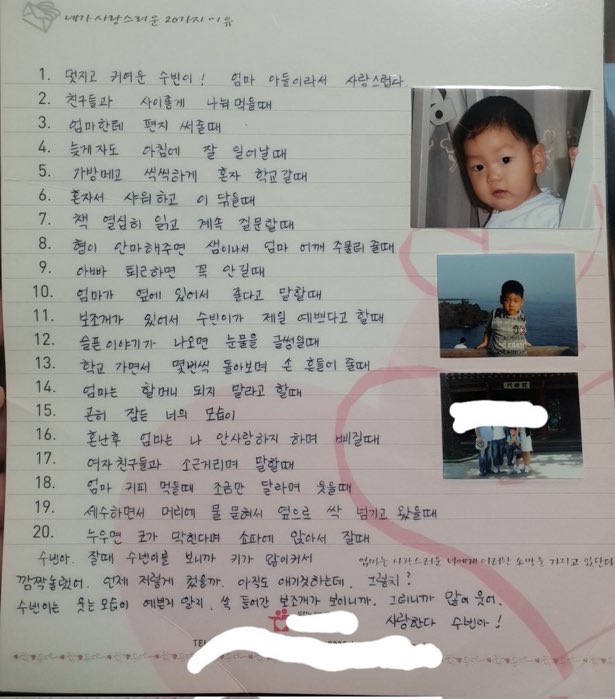 네가 사랑스러운 20가지 이유
1. 멋지고 귀여운 수빈이! 엄마 아들이라서 사랑스럽다.
2. 친구들과 사이좋게 나눠먹을때
3. 엄마한테 편지 써줄때
4. 늦게자도 아침에 잘 일어날때
5. 가방메고 씩씩하게 혼자 학교갈때
6. 혼자서 샤워하고 이 닦을때
7. 책 열심히 읽고 계속 질문할때
8. 형이 안마해주면 샘이나서 엄마 어깨 주물러 줄때
9. 아빠 퇴근하면 꼭 안길때
10. 엄마가 옆에 있어서 좋다고 말할때
11. 보조개가 있어서 수빈이가 제일 예쁘다고 할때
12. 슬픈이야기가 나오면 눈물을 글썽일때
13. 학교 가면서 몇번씩 돌아보며 손 흔들어 줄때
14. 엄마는 할머니 되지 말라고 할때
15. 곤히 잠든 너의 모습이
16. 혼난후 엄마는 나 안사랑하지 하며 삐질때
17. 여자친구들과 소근거리며 말할때
18. 엄마 커피 먹을때 조금만 달라며 웃을때
19. 세수하면서 머리에 물 묻혀서 옆으로 싹 넘기고 왔을때
20. 누우면 코가 막힌다며 소파에 앉아서 잘때
수빈아. 잘때 수빈이를 보니까 키가 많이커서
엄마는 사랑스러운 너에게 이러한 소망을 가지고 있단다
깜짝놀랬어. 언제 저렇게 컸을까. 아직도 애기것하는데. 그렇지?
수빈이는 웃는모습이 예쁜거 알지. 쏙 들어간 보조개가 보이니까. 그러니까 많이 웃어.
사랑한다 수빈아!
TEL